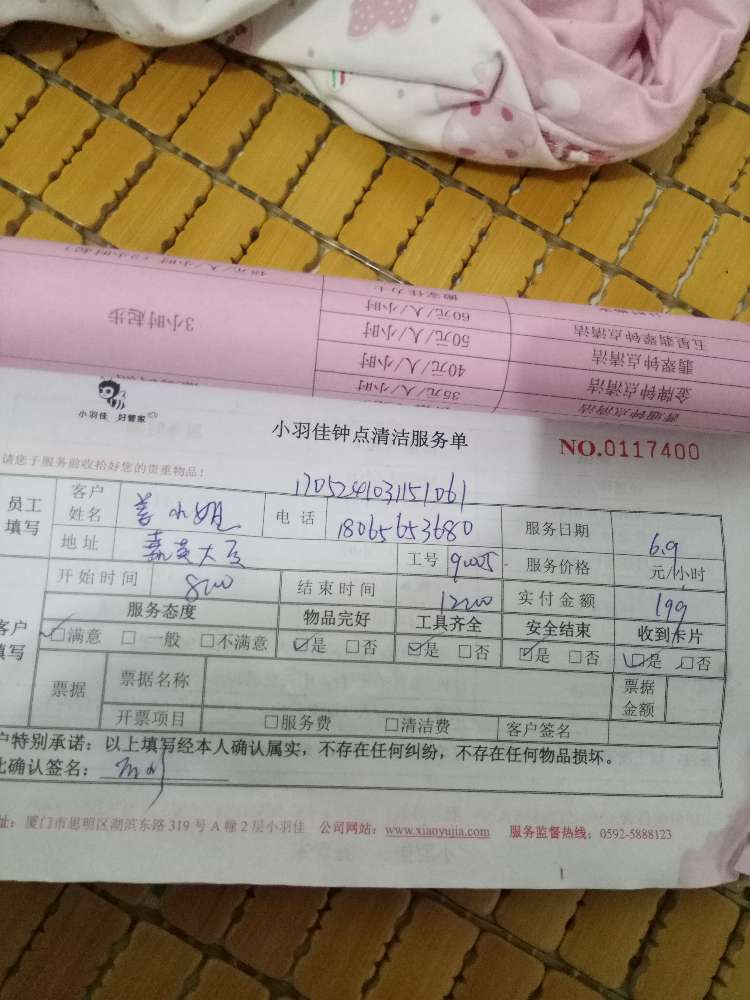 48元/人/小时（3小时起）
搬家佳力士
3小时起步
60元/人/小时
五星翡翠钟点清洁
50元/人/小时
翡翠钟点清洁
40元/人/小时
金牌钟点清洁
35元/人/小时
普通钟点清洁
小羽佳 好管家
小羽佳钟点清洁服务单
NO.0117400
请您于服务前收拾好您的贵重物品！
1705241031151061
员工填写 客户姓名 姜小姐 电话 18065653680 服务日期 6.9
地址 嘉英大厦 工号 服务价格 元/小时
开始时间 8:00 结束时间 12:00 实付金额 199
客户填写 服务态度 物品完好 工具齐全 安全结束 收到卡片
☑满意 □一般 □不满意 ☑是 □否 ☑是 □否 ☑是 □否 ☑是 □否
票据 票据名称 票据金额
开票项目 □服务费 □清洁费 客户签名
户特别承诺：以上填写经本人确认属实，不存在任何纠纷，不存在任何物品损坏。
此确认签名：
址：厦门市思明区湖滨东路 319 号 A 幢 2 层小羽佳 公司网站：www.xiaoyujia.com 服务监督热线：0592-5888123